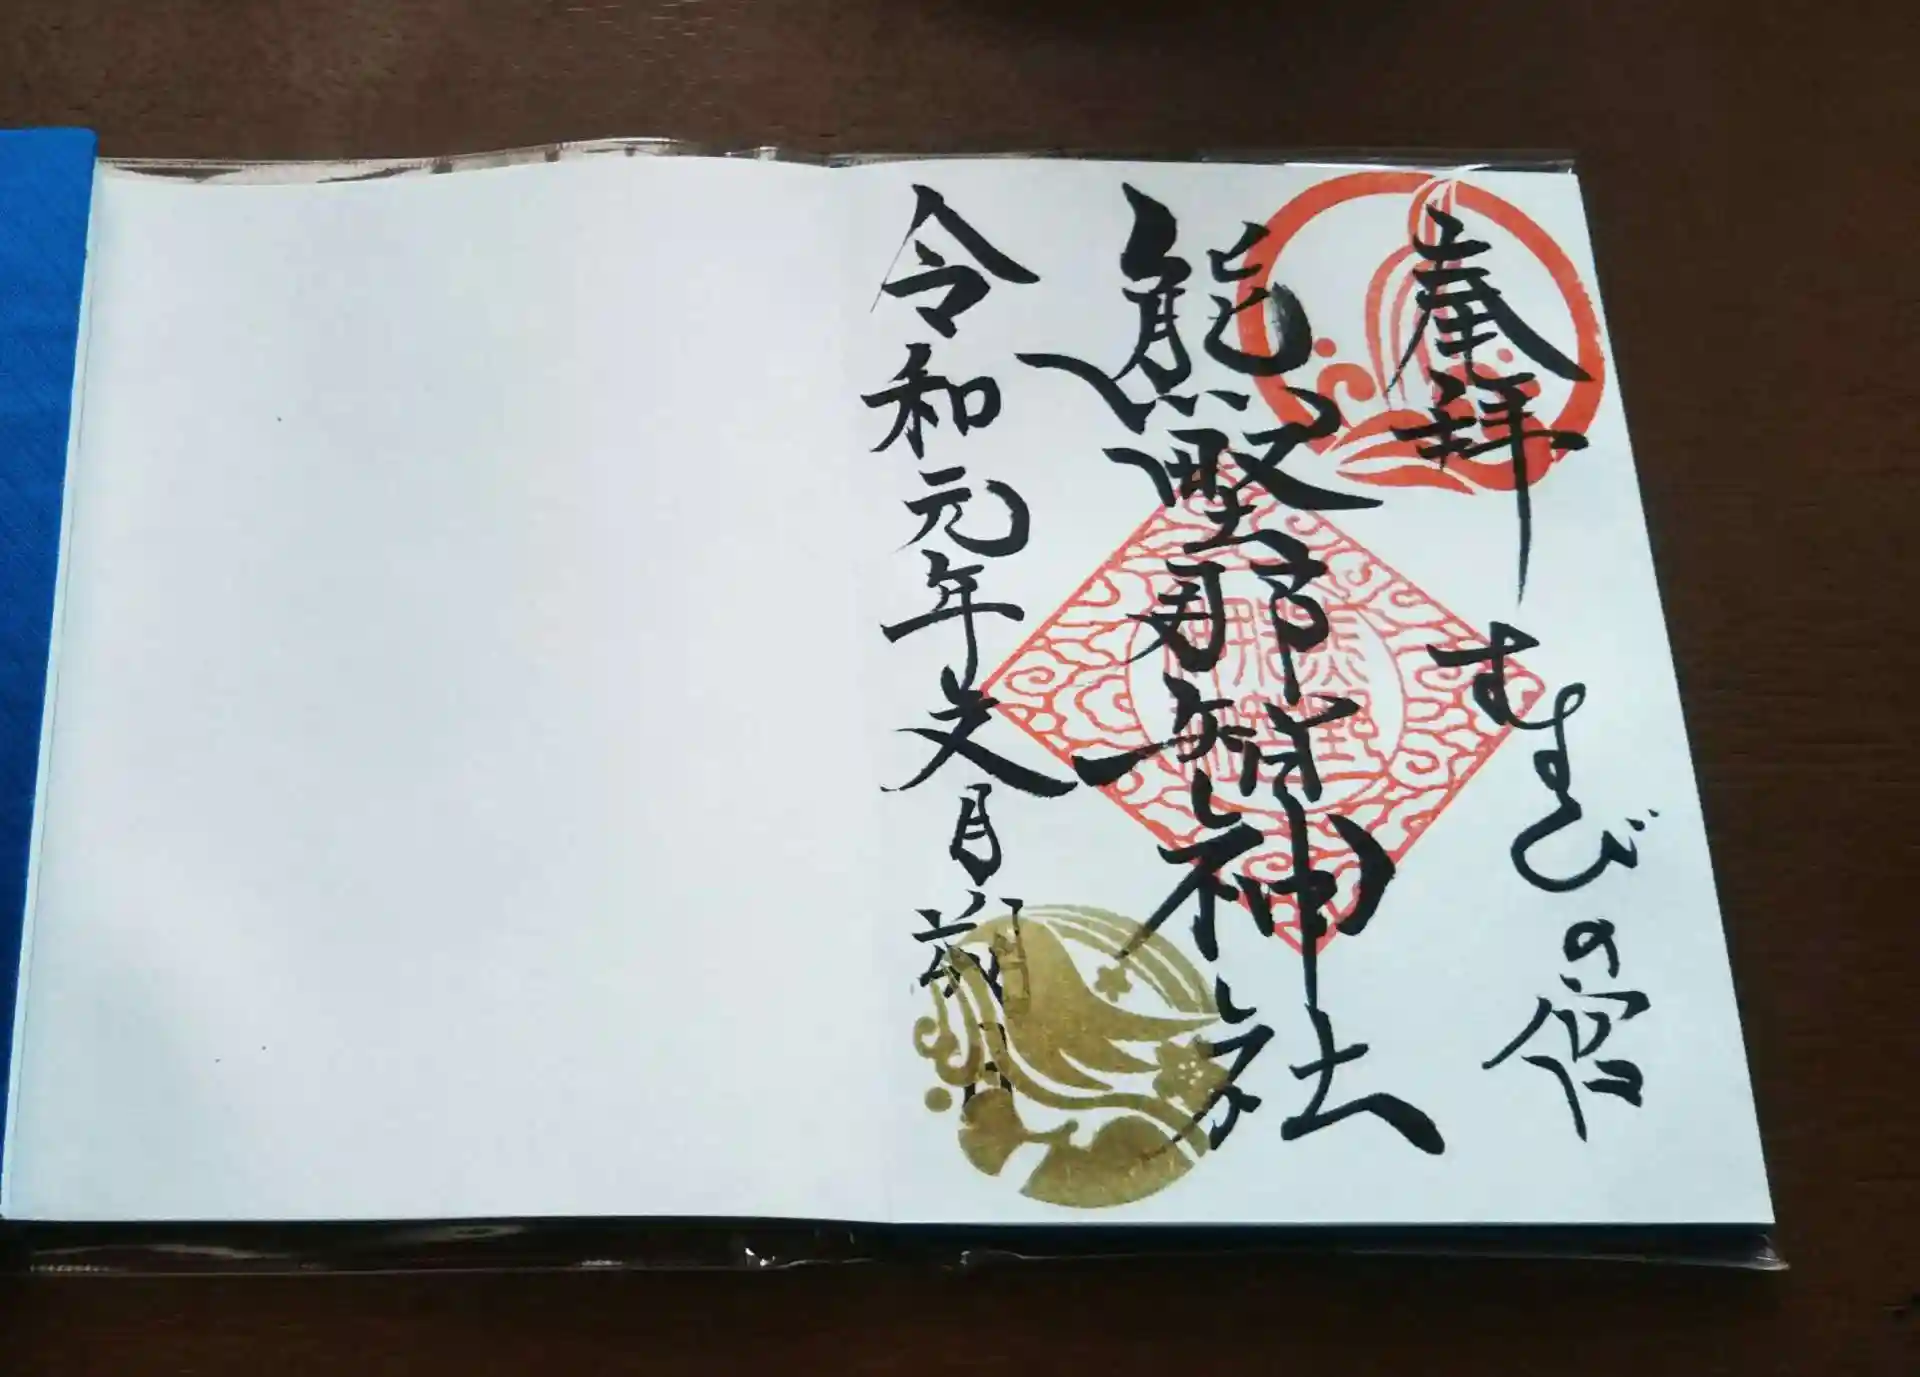 奉拝
むすびの宮
熊野那智神社
令和元年文月朔日